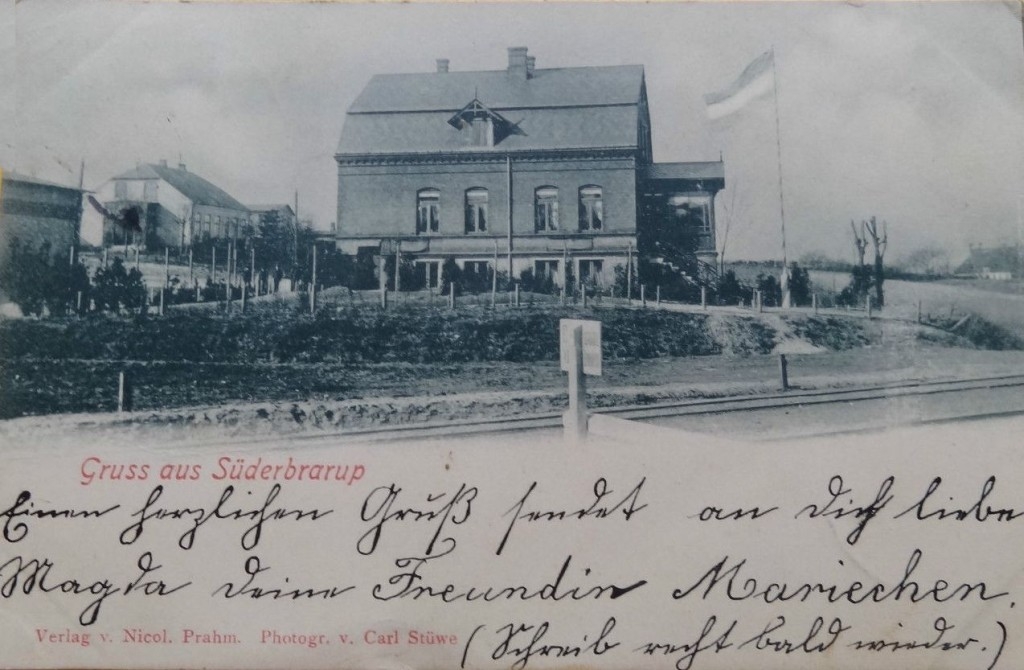 Gruss aus Süderbrarup
Einen herzlichen Gruß sendet an Dich liebe
Magda Deine Freundin Mariechen.
Verlag v. Nicol. Prahm. Photogr. v. Carl Stüwe
(Schreib recht bald wieder.)